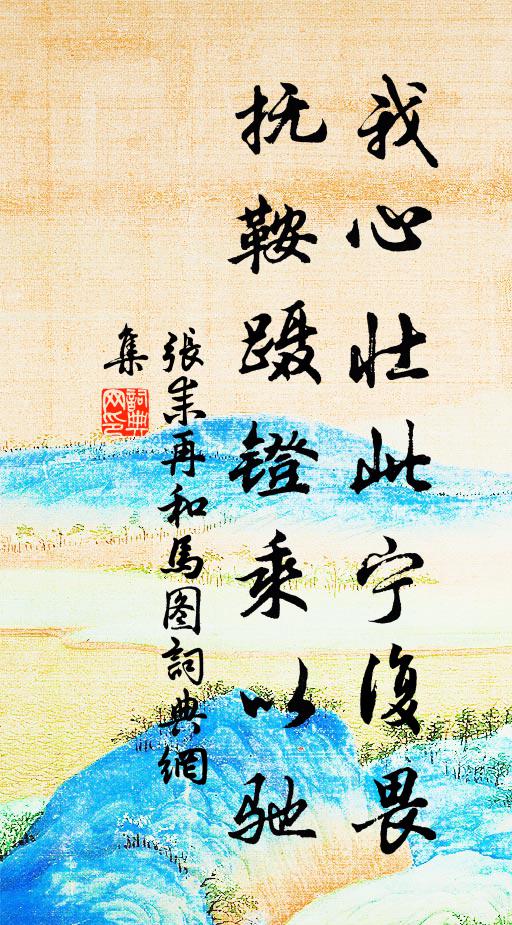 我心壮此宁復畏
抚鞍蹑镫乘以驰
張耒再和馬图詞典網
集
詞典
网印